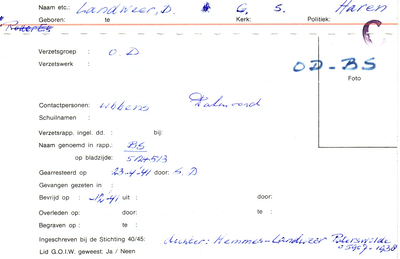 Naam etc.: Landweer, D. G. S. Haren
Geboren: te Kerk: Politiek:
Verzetsgroep : O.D
Verzetswerk :
OD-BS
Foto
Contactpersonen: Wobbens
Schuilnaam :
Verzetsrapp. ingel. dd. : bij:
Naam genoemd in rapp.: BS
op bladzijde: 512+513
Gearresteerd op 23-4-'41 door: S.D
Gevangen gezeten in :
Bevrijd op : uit : door:
Overleden op: door: te :
Begraven op : te :
Ingeschreven bij de Stichting 40/45: dochter: Hemmes-Landweer Paterswolde
Lid G.O.I.W. geweest: Ja / Neen